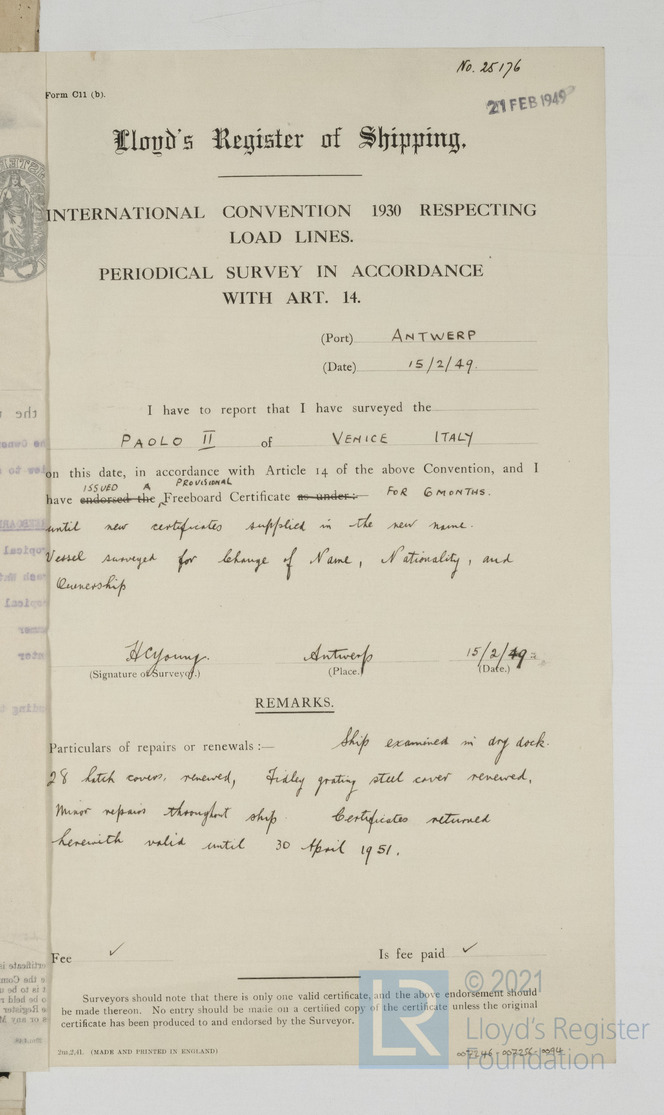 No. 25176
Form C11 (b).
21 FEB 1949
Lloyd's Register of Shipping.
INTERNATIONAL CONVENTION 1930 RESPECTING
LOAD LINES.
PERIODICAL SURVEY IN ACCORDANCE
WITH ART. 14.
(Port) ANTWERP
(Date) 15/2/49.
I have to report that I have surveyed the
PAOLO II of VENICE ITALY
on this date, in accordance with Article 14 of the above Convention, and I
ISSUED A PROVISIONAL
have endorsed the Freeboard Certificate as under:- FOR 6 MONTHS.
until new certificates supplied in the new name.
Vessel surveyed for Change of Name, Nationality, and
Ownership
HCYoung. Antwerp 15/2/49
(Signature of Surveyor.) (Place.) (Date.)
REMARKS.
Particulars of repairs or renewals :— Ship examined in dry dock.
28 hatch covers, renewed, Fidley grating steel cover renewed,
Minor repairs throughout ship. Certificates returned
herewith valid until 30 April 1951.
Fee ✓ Is fee paid ✓
Surveyors should note that there is only one valid certificate, and the above endorsement should
be made thereon. No entry should be made on a certified copy of the certificate unless the original
certificate has been produced to and endorsed by the Surveyor.
2m,2,41. (MADE AND PRINTED IN ENGLAND)
LR
© 2021
Lloyd's Register
Foundation